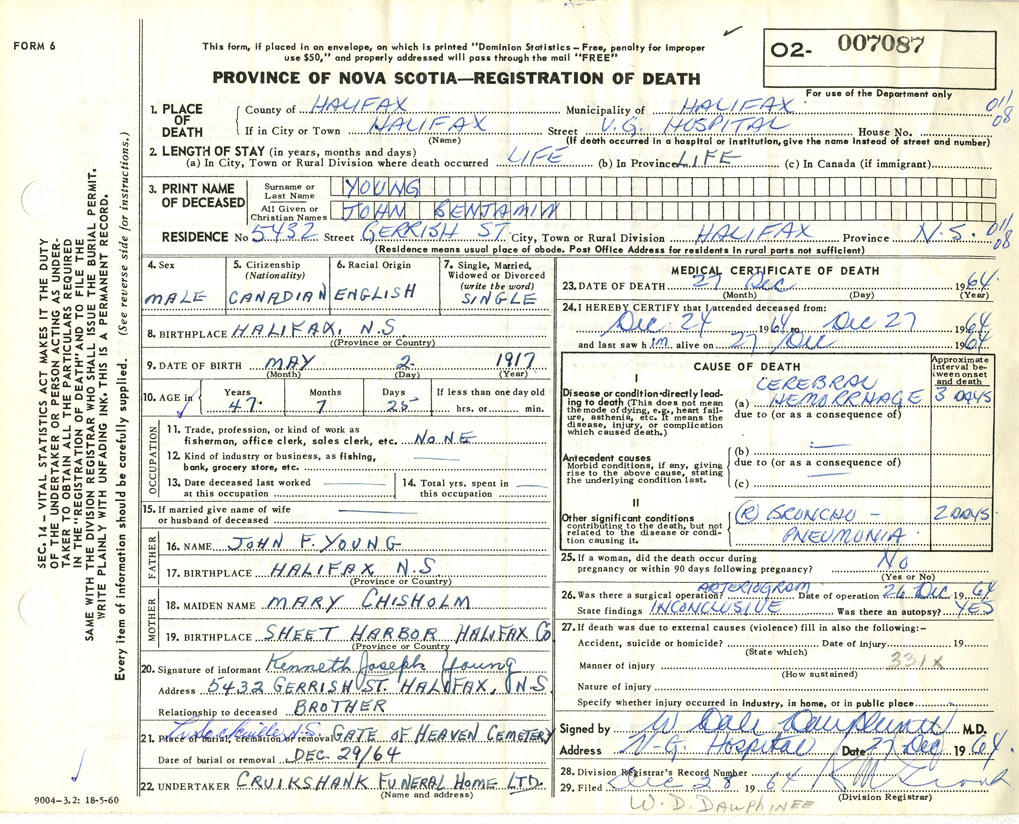 FORM 6
This form, if placed in an envelope, on which is printed "Dominion Statistics – Free, penalty for improper
use $50," and properly addressed will pass through the mail "FREE"
PROVINCE OF NOVA SCOTIA—REGISTRATION OF DEATH
O2- 007087
For use of the Department only
1. PLACE OF DEATH
County of HALIFAX Municipality of HALIFAX 011
If in City or Town HALIFAX Street V.G. HOSPITAL House No. 08
(Name) (If death occurred in a hospital or institution, give the name instead of street and number)
2. LENGTH OF STAY (in years, months and days)
(a) In City, Town or Rural Division where death occurred LIFE (b) In Province LIFE (c) In Canada (if immigrant)
3. PRINT NAME OF DECEASED
Surname or Last Name YOUNG
All Given or Christian Names JOHN BENJAMIN
RESIDENCE No 5432 Street GERRISH ST. City, Town or Rural Division HALIFAX Province N.S. 011 08
(Residence means usual place of abode. Post Office Address for residents in rural parts not sufficient)
4. Sex MALE
5. Citizenship (Nationality) CANADIAN
6. Racial Origin ENGLISH
7. Single, Married, Widowed or Divorced (write the word) SINGLE
8. BIRTHPLACE HALIFAX, N.S
(Province or Country)
9. DATE OF BIRTH MAY 2 1917
(Month) (Day) (Year)
10. AGE in Years 47 Months 7 Days 25 If less than one day old hrs. or min.
OCCUPATION
11. Trade, profession, or kind of work as
fisherman, office clerk, sales clerk, etc. NONE
12. Kind of industry or business, as fishing,
bank, grocery store, etc.
13. Date deceased last worked
at this occupation
14. Total yrs. spent in
this occupation
15. If married give name of wife
or husband of deceased
FATHER
16. NAME JOHN F. YOUNG
17. BIRTHPLACE HALIFAX N.S.
(Province or Country)
MOTHER
18. MAIDEN NAME MARY CHISHOLM
19. BIRTHPLACE SHEET HARBOR HALIFAX CO
(Province or Country)
20. Signature of informant Kenneth Joseph Young
Address 5432 GERRISH ST. HALIFAX, N.S.
Relationship to deceased BROTHER
21. Place of burial, cremation or removal GATE OF HEAVEN CEMETERY
Date of burial or removal DEC. 29/64
22. UNDERTAKER CRUIKSHANK FUNERAL HOME LTD.
(Name and address)
MEDICAL CERTIFICATE OF DEATH
23. DATE OF DEATH 27 Dec 1964
(Month) (Day) (Year)
24. I HEREBY CERTIFY that I attended deceased from:
Dec 24 1964 to Dec 27 1964
and last saw him alive on 27/Dec 1964
CAUSE OF DEATH
Approximate interval between onset and death
I
Disease or condition directly leading to death (This does not mean the mode of dying, e.g., heart failure, asthenia, etc. It means the disease, injury, or complication which caused death.)
CEREBRAL
(a) HEMORRHAGE 3 DAYS
due to (or as a consequence of)
Antecedent causes
Morbid conditions, if any, giving rise to the above cause, stating the underlying condition last.
(b)
due to (or as a consequence of)
(c)
II
Other significant conditions
contributing to the death, but not related to the disease or condition causing it.
(R) BRONCHO - 2 DAYS
PNEUMONIA
25. If a woman, did the death occur during
pregnancy or within 90 days following pregnancy? No
(Yes or No)
26. Was there a surgical operation? ARTERIOGRAM Date of operation 26 Dec 1964
State findings INCONCLUSIVE Was there an autopsy? YES
27. If death was due to external causes (violence) fill in also the following:–
Accident, suicide or homicide? Date of injury 19
(State which)
Manner of injury 331X
(How sustained)
Nature of injury
Specify whether injury occurred in industry, in home, or in public place
Signed by W Dale Dauphinee M.D.
Address V.G. Hospital Date 27 Dec 1964
28. Division Registrar's Record Number
29. Filed Dec 28 1964
(Division Registrar)
W. D. DAUPHINEE
SEC. 14 – VITAL STATISTICS ACT MAKES IT THE DUTY
OF THE UNDERTAKER OR PERSON ACTING AS UNDER-
TAKER TO OBTAIN ALL THE PARTICULARS REQUIRED
IN THE "REGISTRATION OF DEATH" AND TO FILE THE
SAME WITH THE DIVISION REGISTRAR WHO SHALL ISSUE THE BURIAL PERMIT.
WRITE PLAINLY WITH UNFADING INK. THIS IS A PERMANENT RECORD.
Every item of information should be carefully supplied. (See reverse side for instructions.)
9004–3.2: 18-5-60